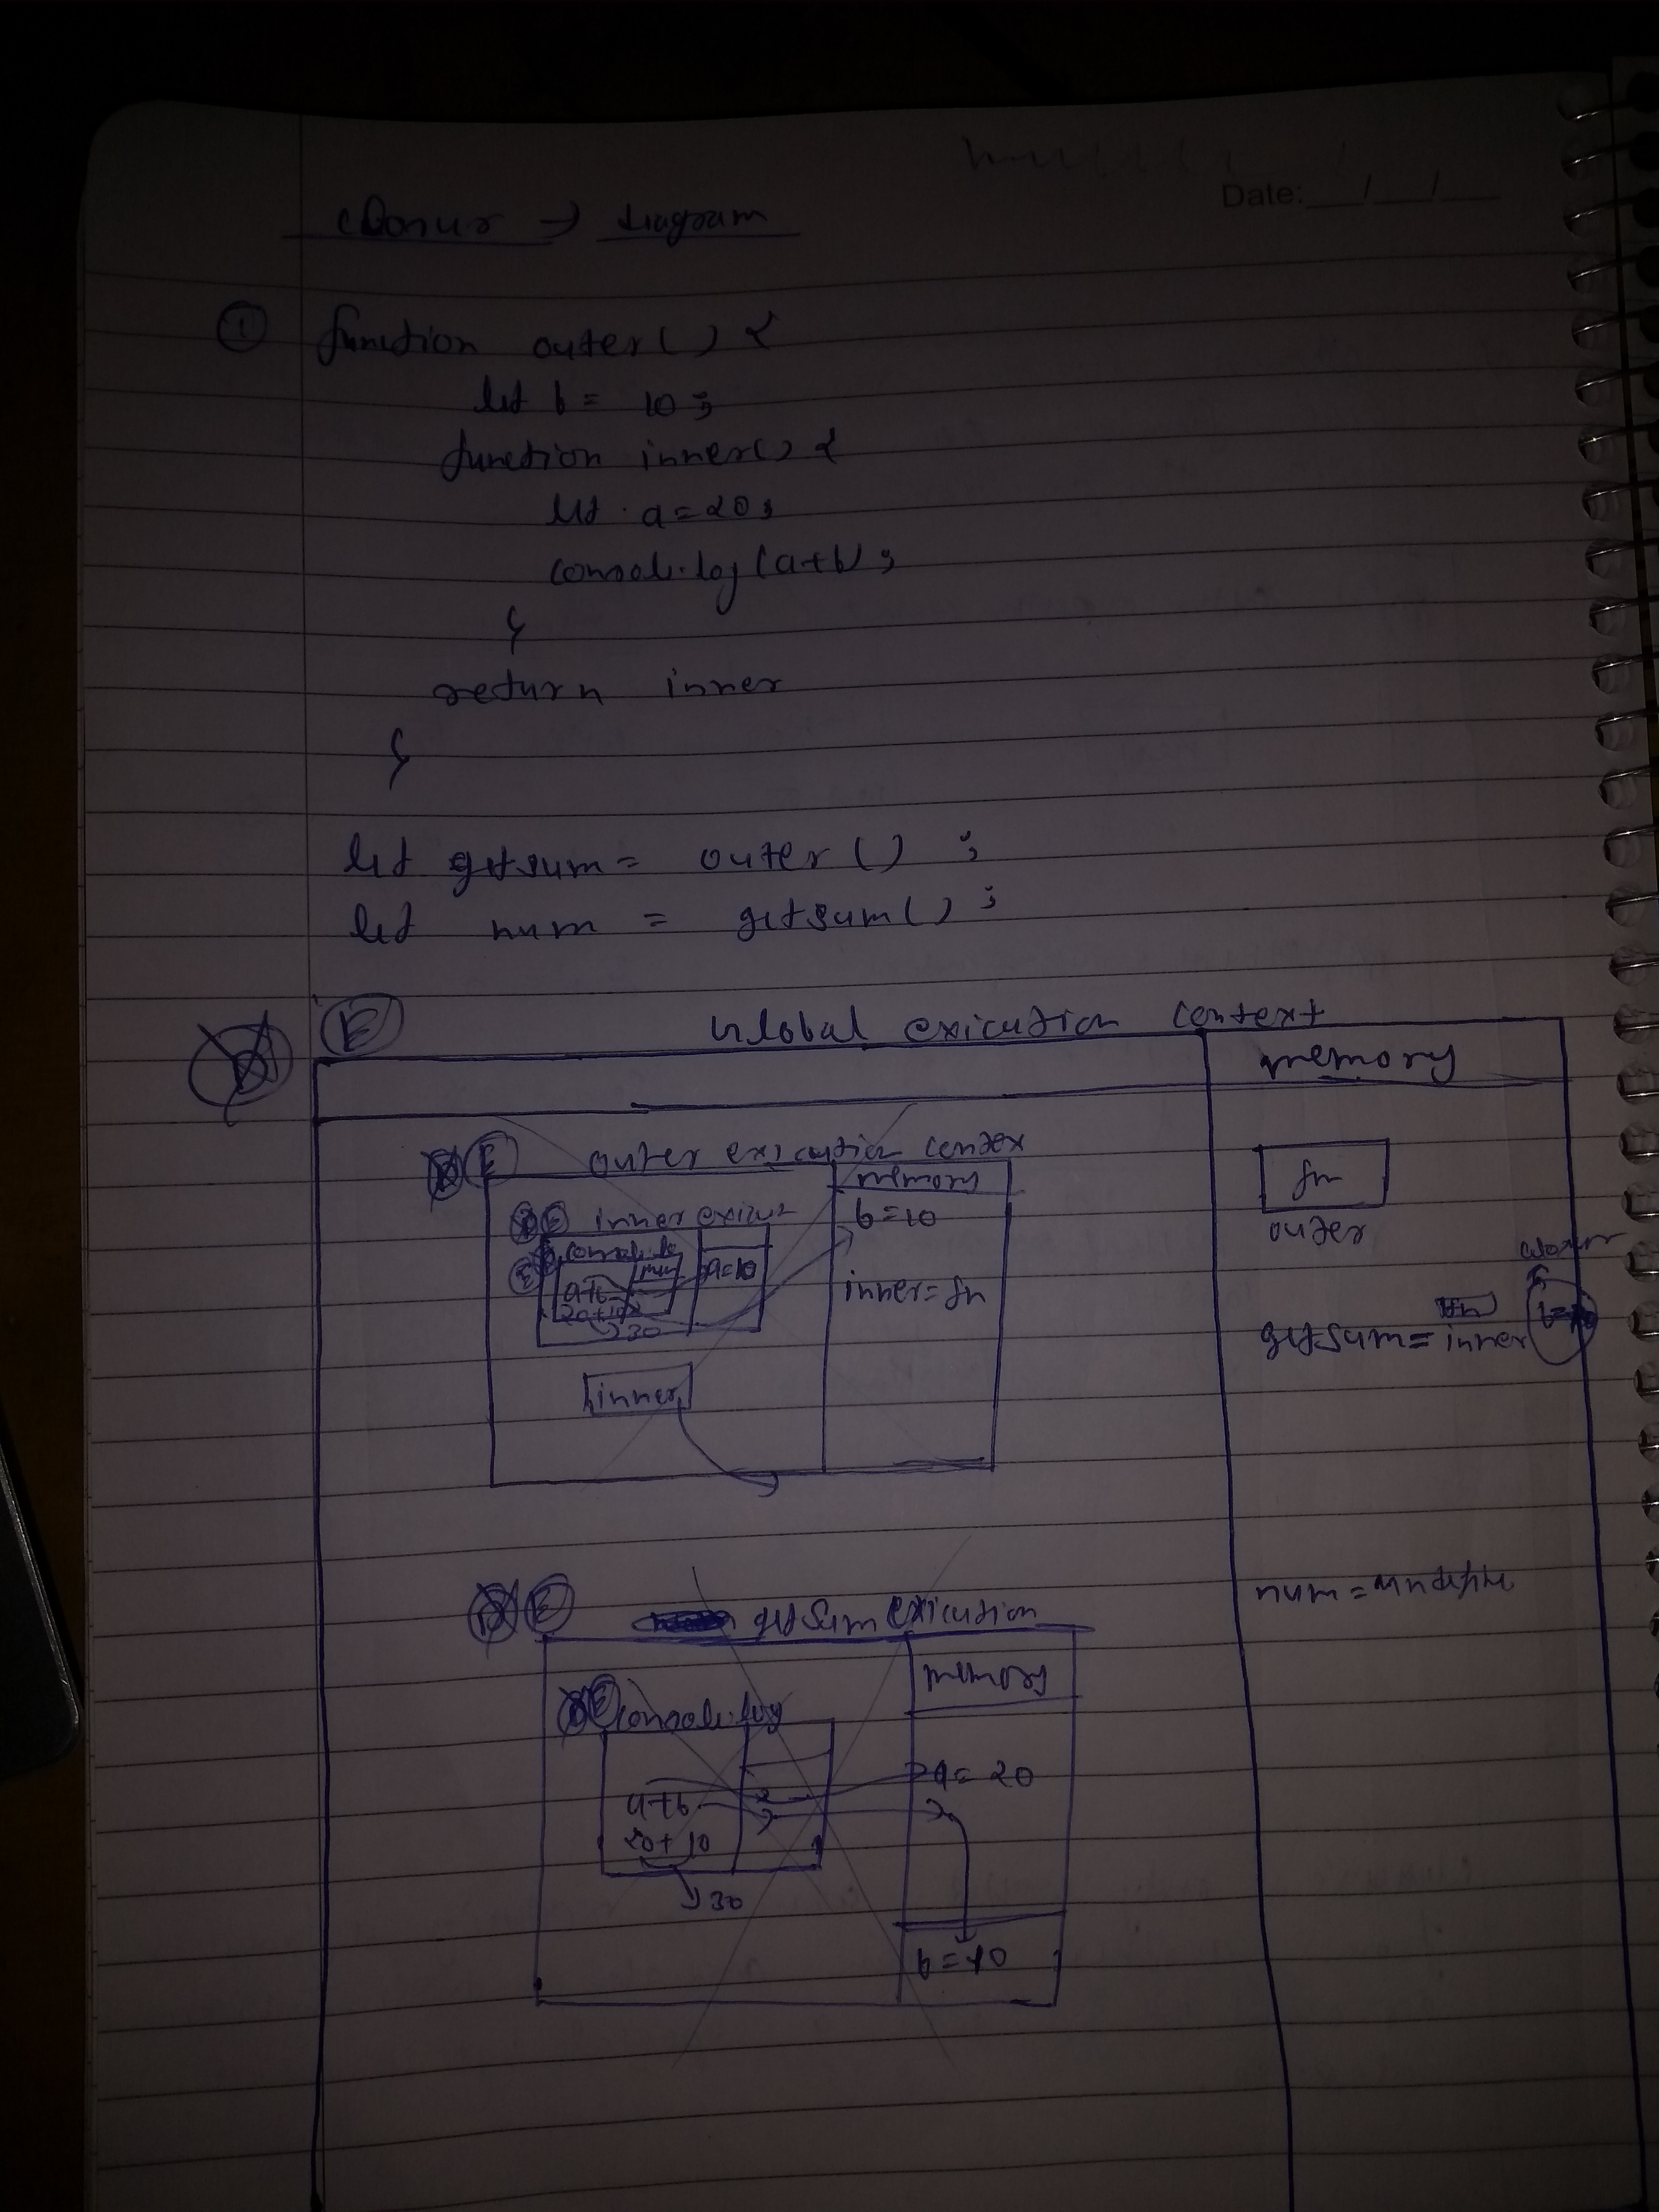 Date: __/__/__
closur → diagram
① function outer() {
let b = 10;
function inner() {
let a = 20;
console.log(a+b);
}
return inner
}
let getsum = outer();
let num = getsum();
E Global exicution context
memory
E outer exicution contex
memory
fn
E inner exicut
b = 10
outer
E console.lo
mem
a=10
closur
a+b
20+10
30
inner = fn
fn
getsum = inner
inner
num = undefine
E getsum exicution
memory
E console.log
a = 20
a+b
20+10
30
b = 10